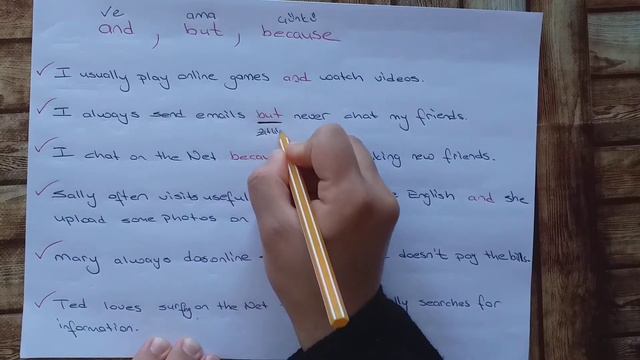 ve ama çünkü
and, but, because
I usually play online games and watch videos.
I always send emails but never chat my friends.
I chat on the Net king new friends.
Sally often visits useful English and she
upload some photos on
Mary always dosonline doesn't pay the bills.
Ted loves surfy on the Net searches for
information.